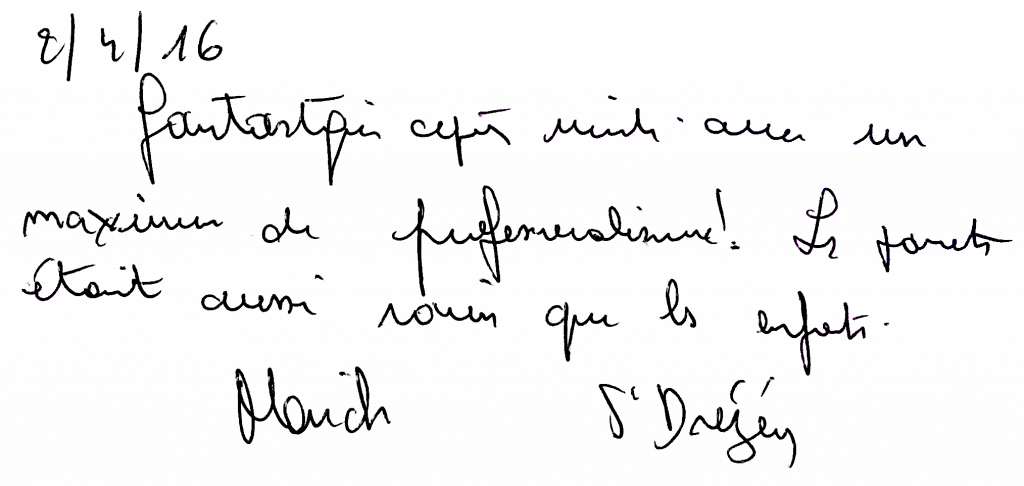 2/4/16
Fantastique après midi avec un
maximum de professionnalisme! Les parents
étaient aussi ravis que les enfants.
St Drézéry